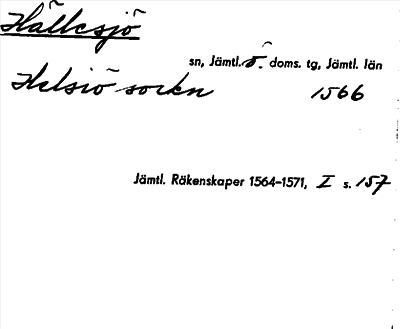 Hällesjö
sn, Jämtl. ö. doms. tg, Jämtl. län
Helsiö sockn 1566
Jämtl. Räkenskaper 1564-1571, I s. 157